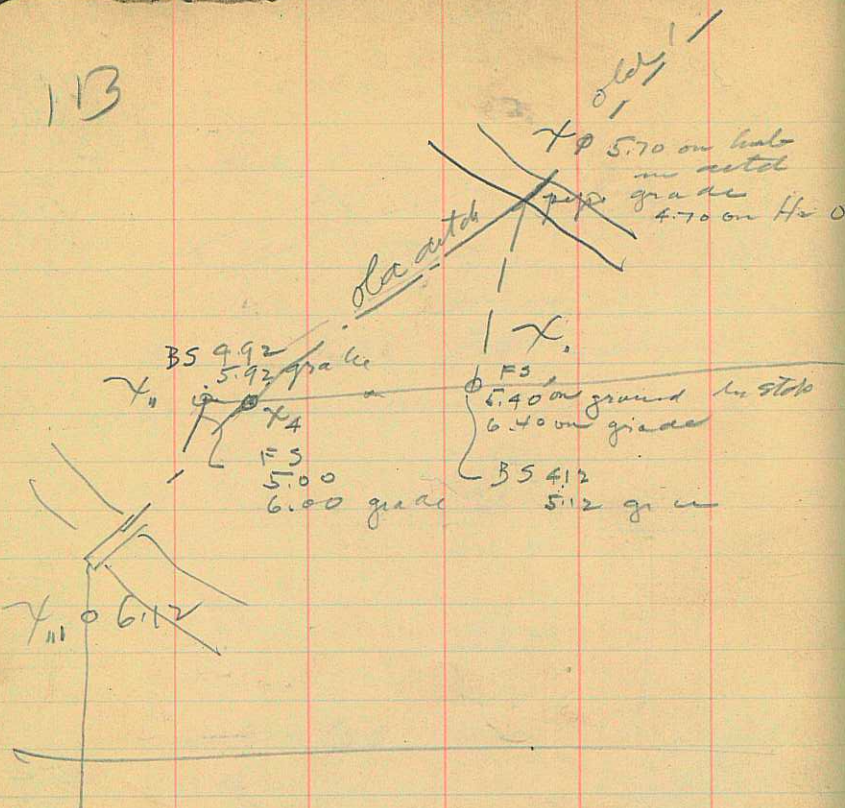 113
old
X 5.70 on hub
in ditch
pipe grade
4.70 on H2O
old ditch
BS 4.92
5.92 grade
X,,
X4
FS
5.00
6.00 grade
X,
FS
5.40 on ground
6.40 on grade
BS 4.12
5.12 gr
X,,, 6.12